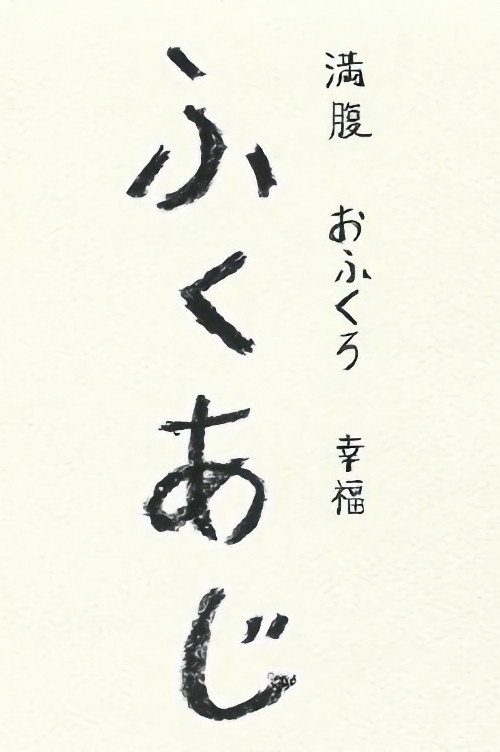 満腹 おふくろ 幸福
ふくあじ